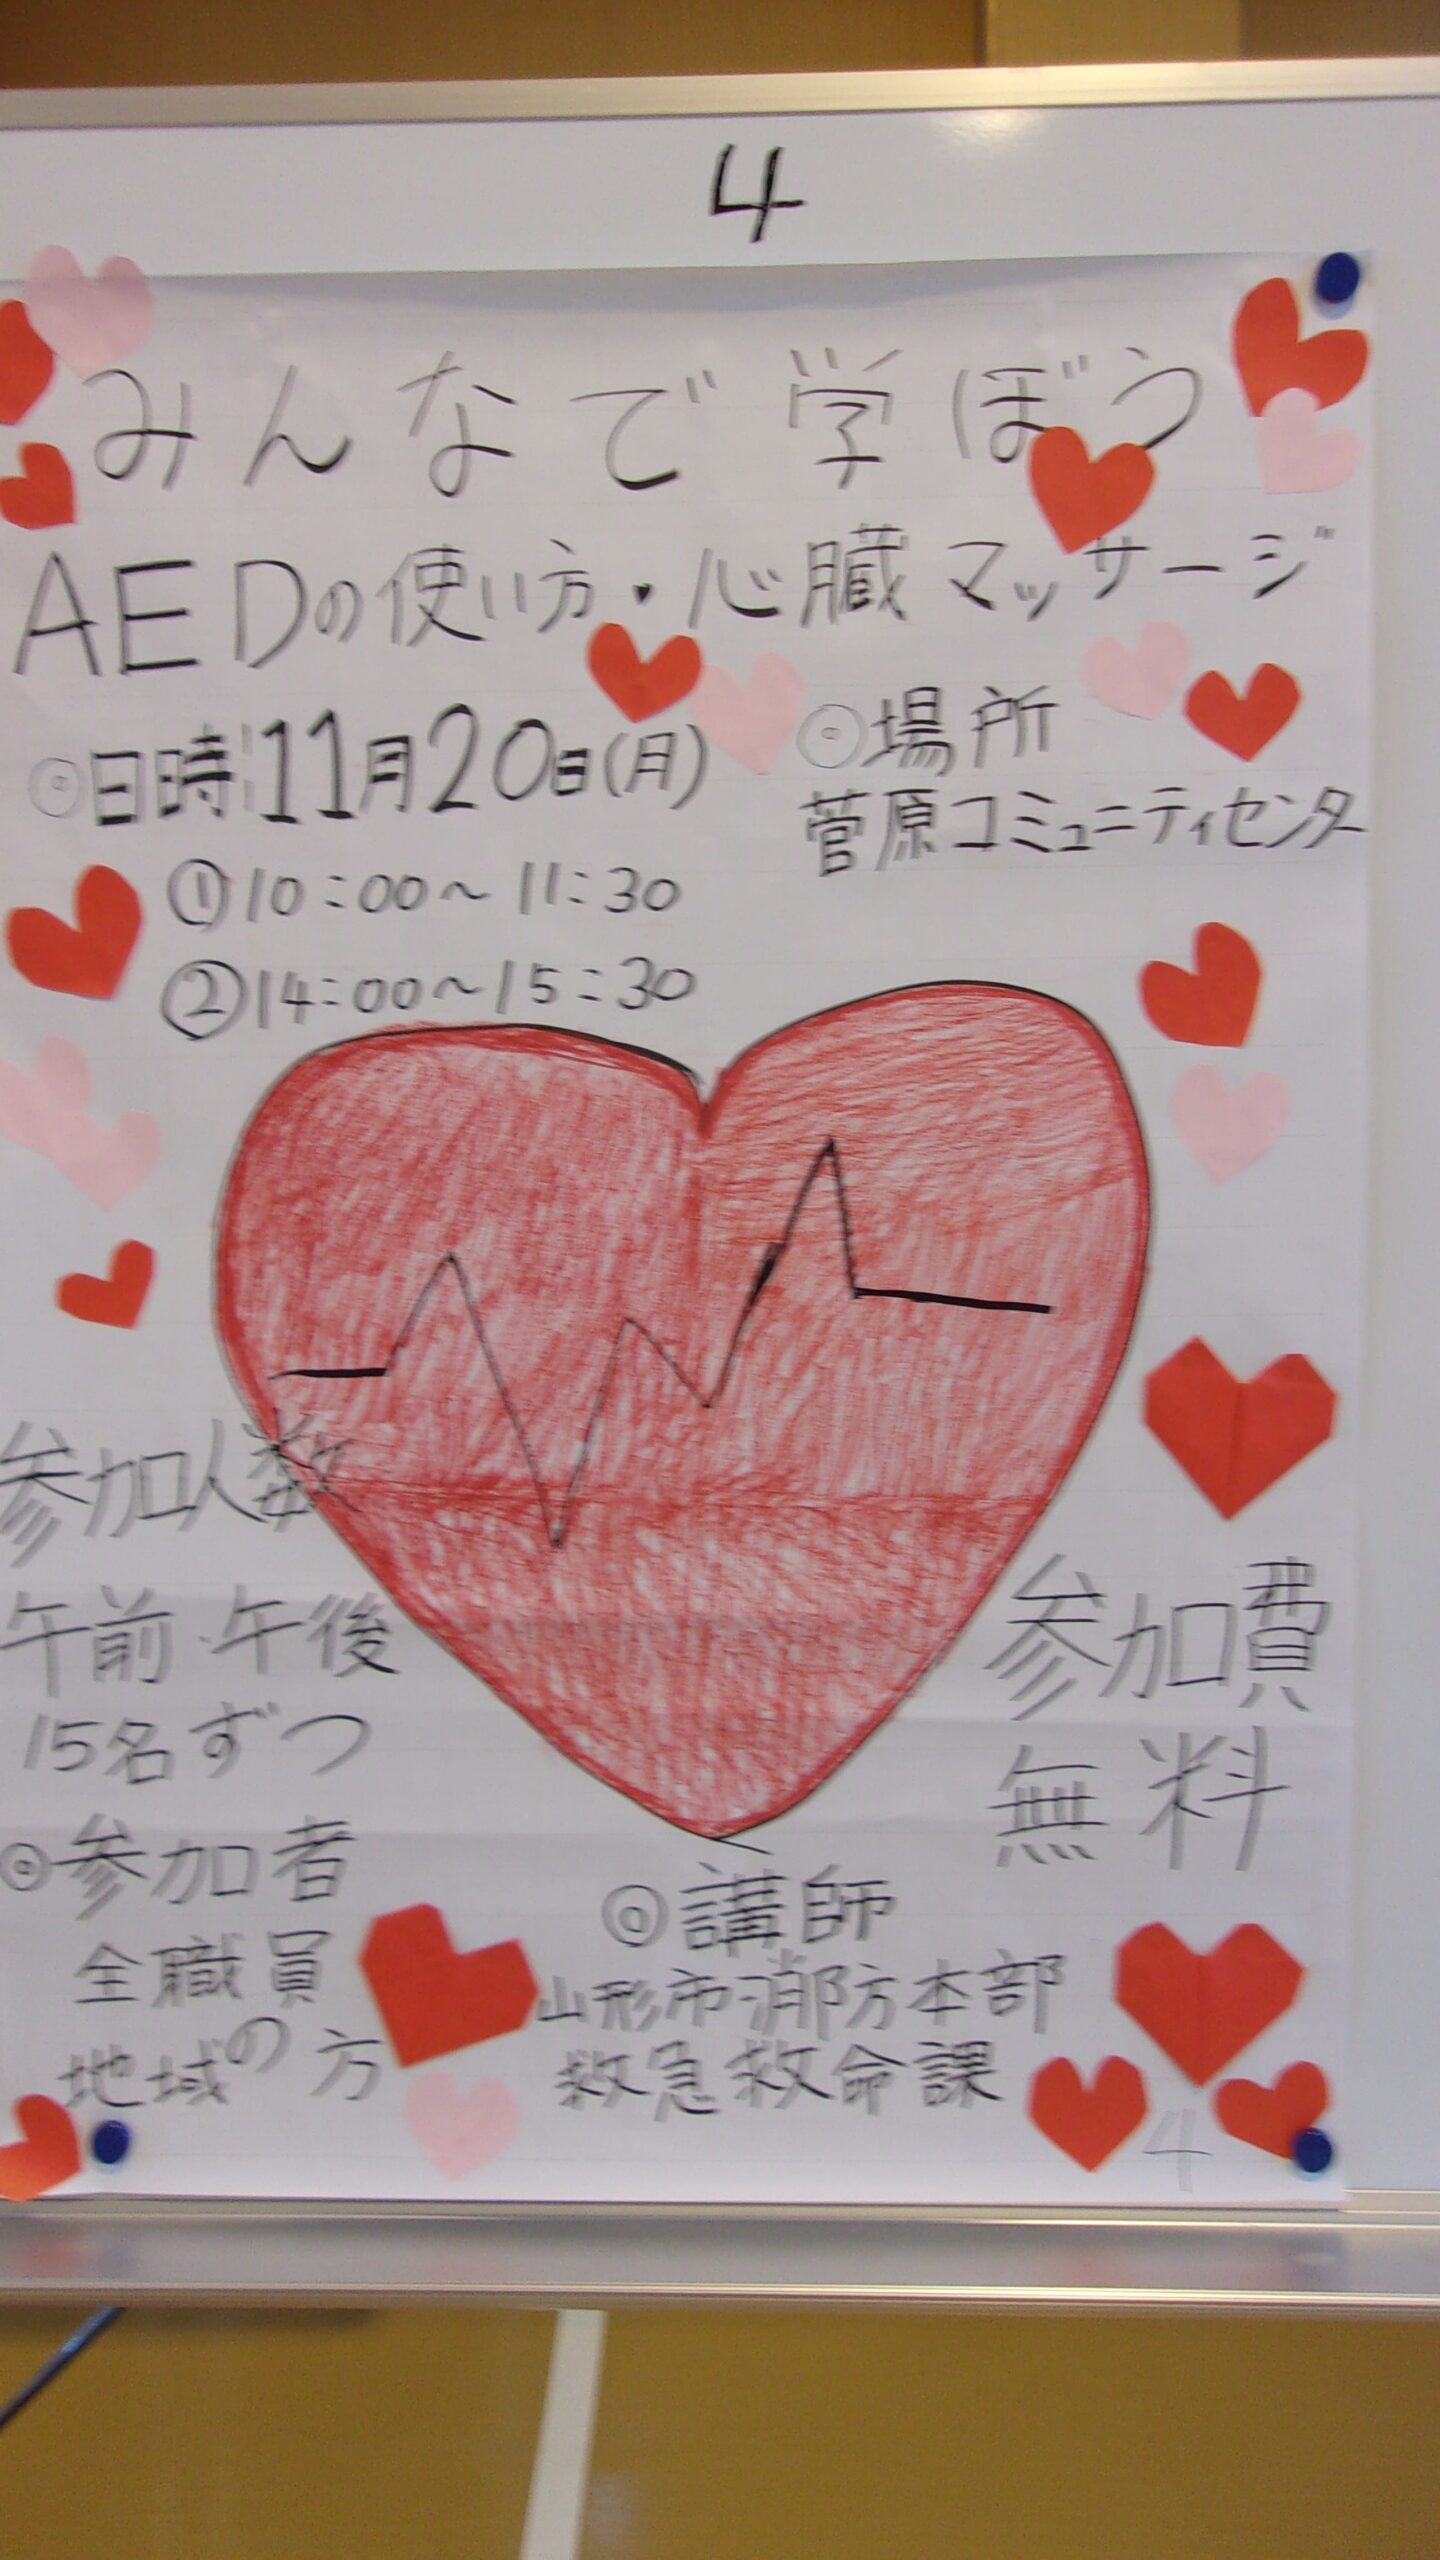 4
みんなで学ぼう
AEDの使い方・心臓マッサージ
◎日時:11月20日(月)
①10:00～11:30
②14:00～15:30
◎場所
菅原コミュニティセンター
参加人数
午前・午後
15名ずつ
参加費
無料
◎参加者
全職員
地域の方
◎講師
山形市消防本部
救急救命課
4